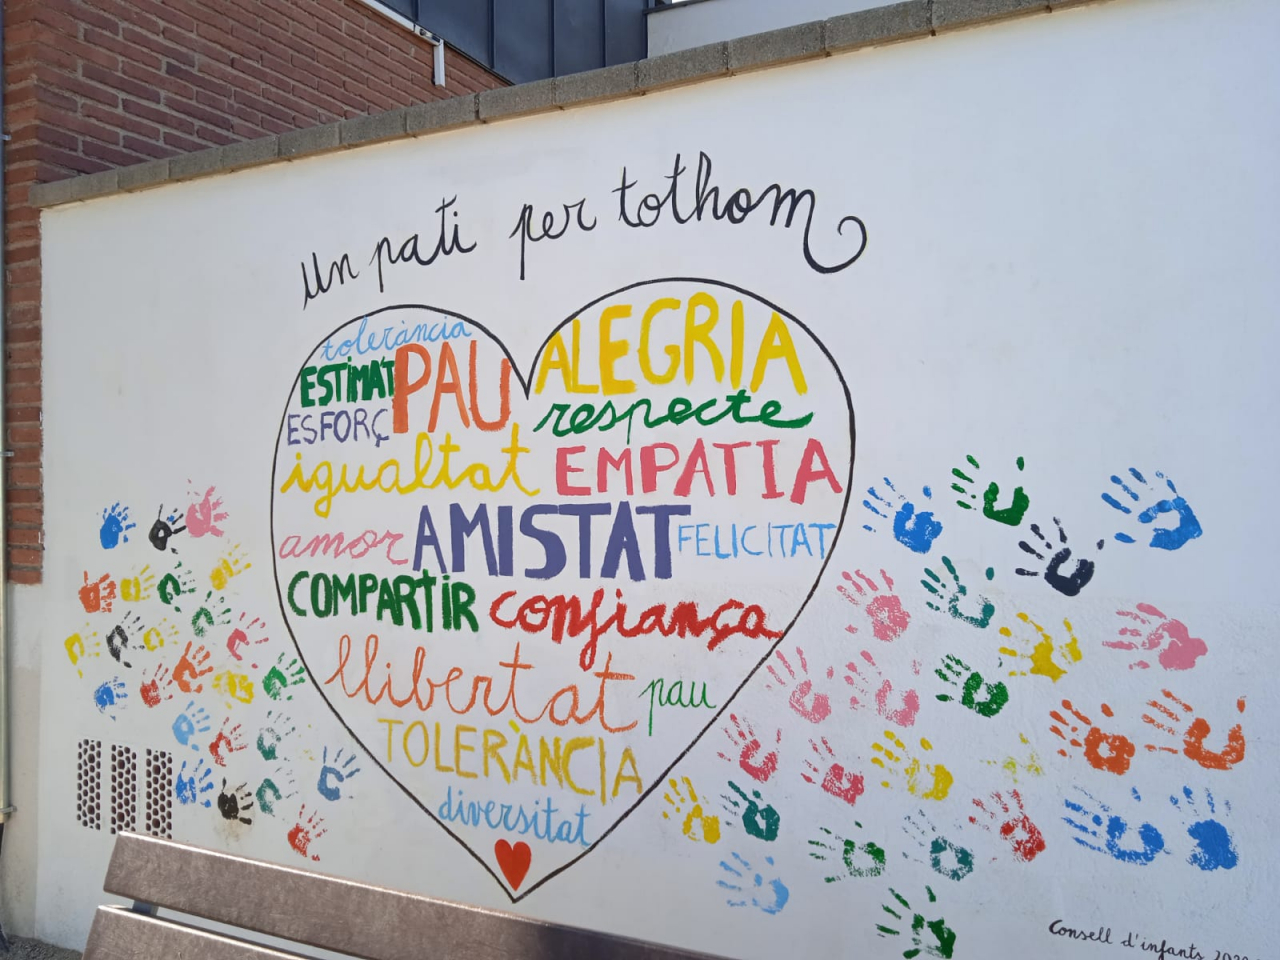 Un pati per tothom
tolerància
ESTIMA'T PAU ALEGRIA
ESFORÇ respecte
igualtat EMPATIA
amor AMISTAT FELICITAT
COMPARTIR confiança
llibertat pau
TOLERÀNCIA
diversitat
Consell d'infants